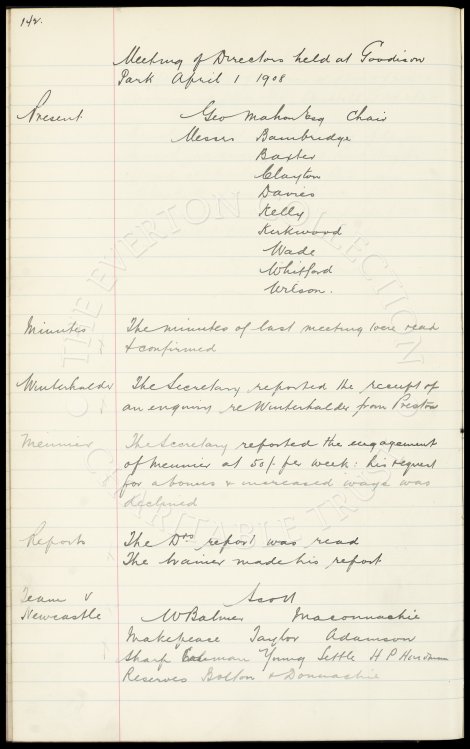 142.
Meeting of Directors held at Goodison
Park April 1 1908
Present Geo Mahon Esq Chair
Messrs Bainbridge
Baxter
Clayton
Davies
Kelly
Kirkwood
Wade
Whitford
Wilson.
Minutes The minutes of last meeting were read
& confirmed
Winterhalder The Secretary reported the receipt of
an enquiry re Winterhalder from Preston
Meunier The Secretary reported the engagement
of Meunier at 50/- per week: his request
for a bonus & increased wage was
declined
Reports The Drs report was read
The trainer made his report
Team v Scott
Newcastle W Balmer Maconnachie
Makepeace Taylor Adamson
Sharp Young Settle H P Hardman
Reserves Bolton & Donnachie
THE EVERTON COLLECTION
CHARITABLE TRUST